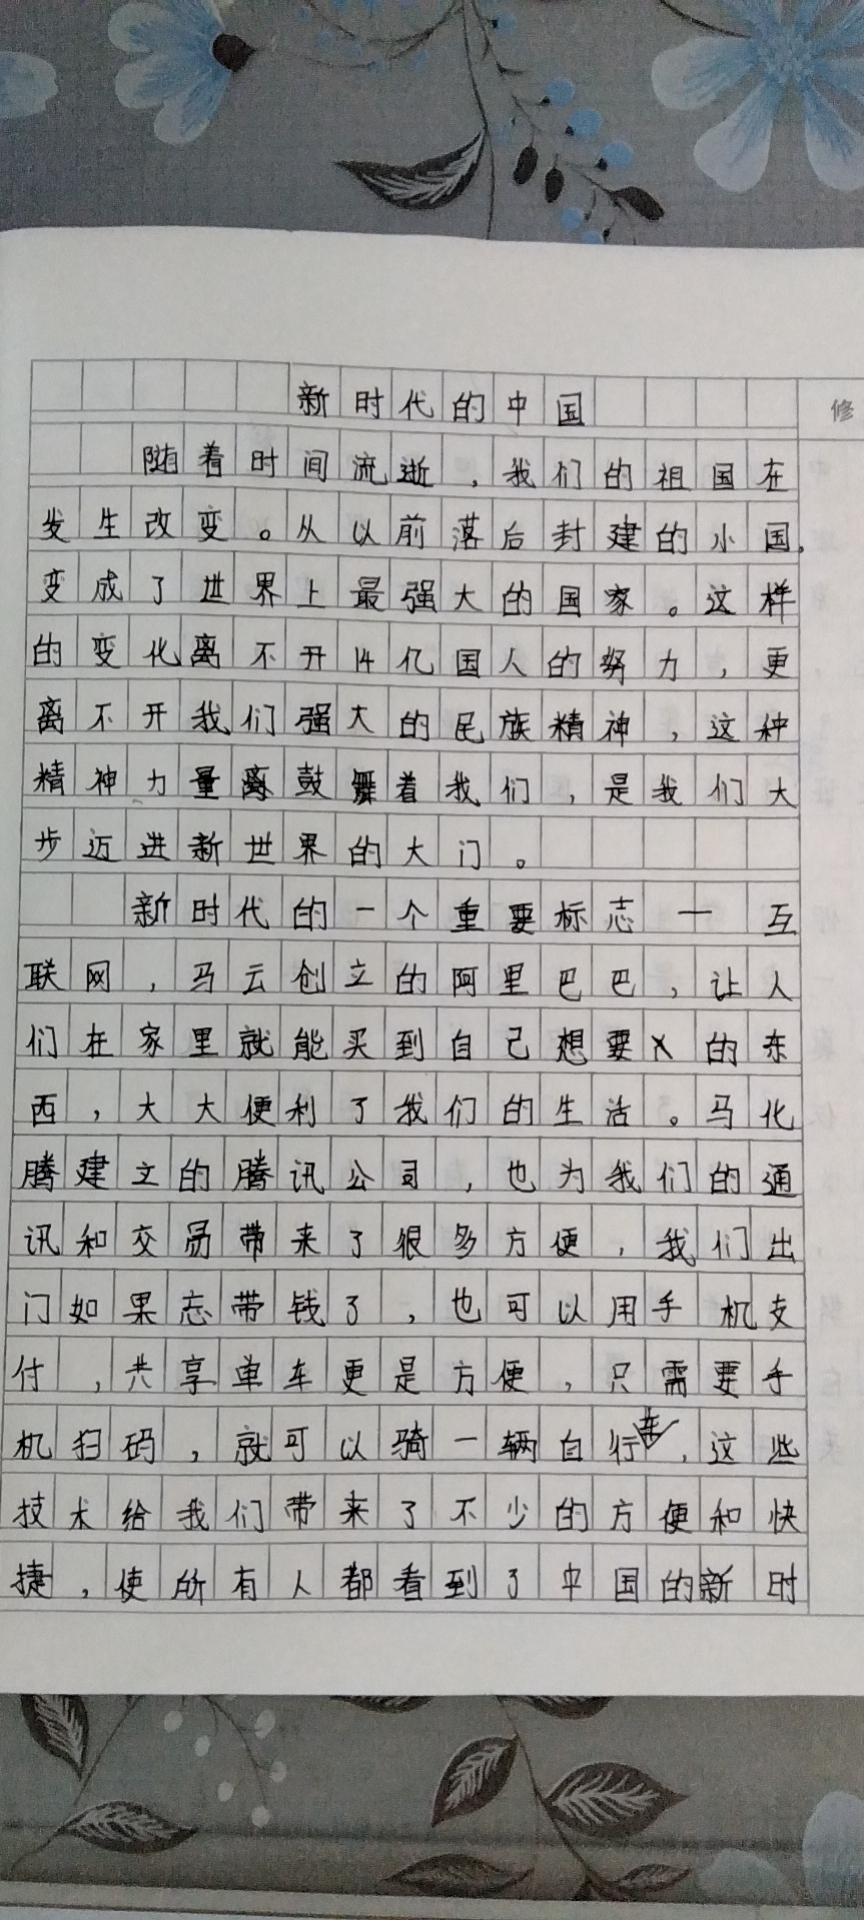 新时代的中国
修
随着时间流逝，我们的祖国在
发生改变。从以前落后封建的小国，
变成了世界上最强大的国家。这样
的变化离不开14亿国人的努力，更
离不开我们强大的民族精神，这种
精神力量鼓舞着我们，是我们大
步迈进新世界的大门。
新时代的一个重要标志一互
联网，马云创立的阿里巴巴，让人
们在家里就能买到自己想要的东
西，大大便利了我们的生活。马化
腾建立的腾讯公司，也为我们的通
讯和交易带来了很多方便，我们出
门如果忘带钱了，也可以用手机支
付，共享单车更是方便，只需要手
机扫码，就可以骑一辆自行车，这些
技术给我们带来了不少的方便和快
捷，使所有人都看到了中国的新时